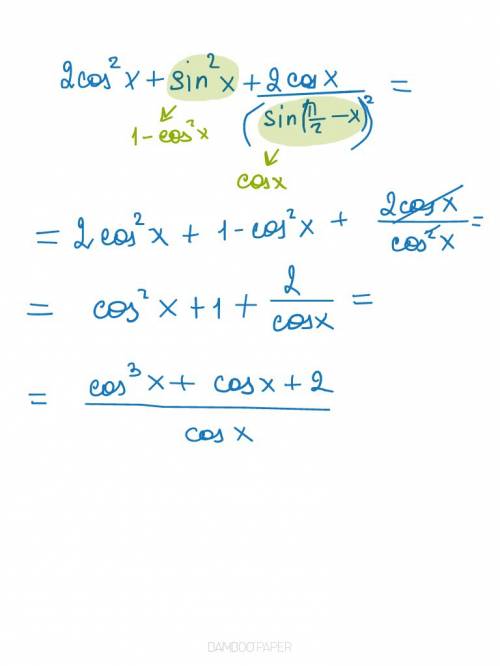 2cos²x + sin²x + 2cosx / (sin(π/2 − x))² =
1-cos²x
cosx
= 2cos²x + 1-cos²x + 2cosx / cos²x =
= cos²x + 1 + 2 / cosx =
= cos³x + cosx + 2 / cosx
BAMBOOPAPER